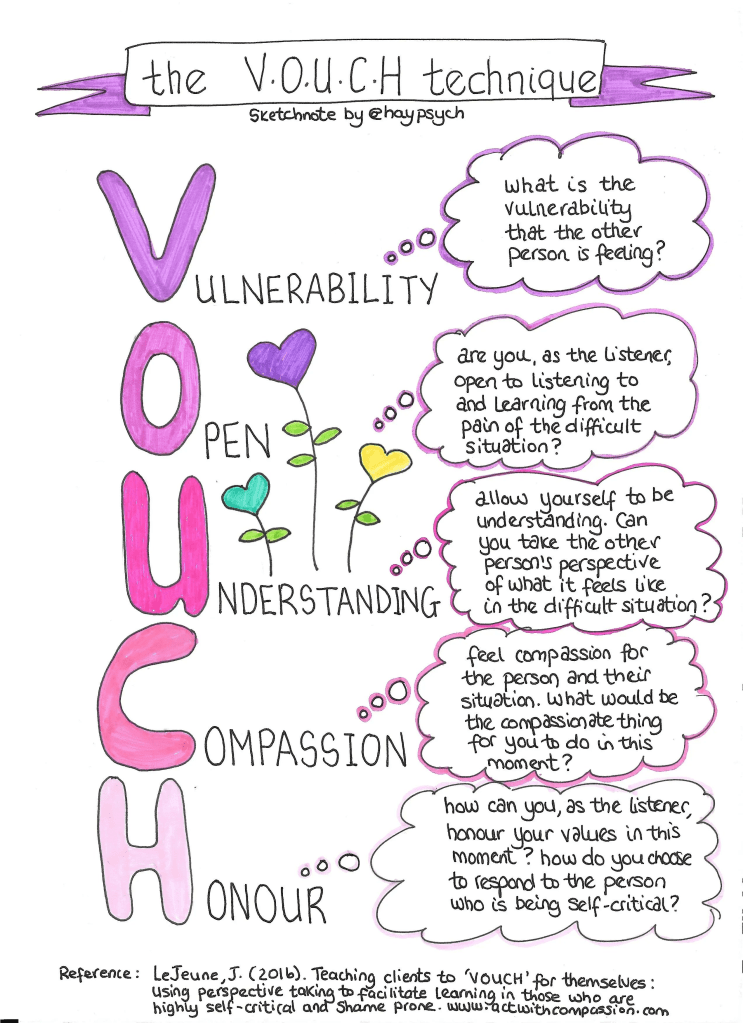 the V.O.U.C.H technique
Sketchnote by @haypsych
VULNERABILITY
what is the
vulnerability
that the other
person is feeling?
OPEN
are you, as the listener,
open to listening to
and learning from the
pain of the difficult
situation?
UNDERSTANDING
allow yourself to be
understanding. Can
you take the other
person's perspective
of what it feels like
in the difficult situation?
COMPASSION
feel compassion for
the person and their
situation. What would be
the compassionate thing
for you to do in this
moment?
HONOUR
how can you, as the listener,
honour your values in this
moment? how do you choose
to respond to the person
who is being self-critical?
Reference: LeJeune, J. (2016). Teaching clients to 'VOUCH' for themselves:
using perspective taking to facilitate learning in those who are
highly self-critical and shame prone. www.actwithcompassion.com